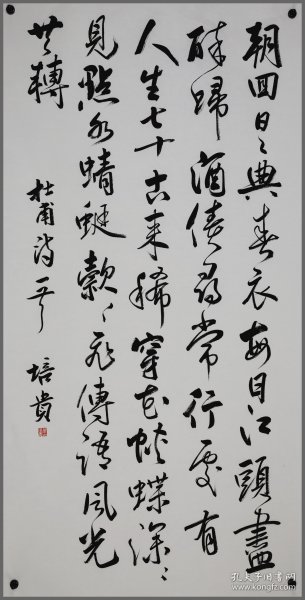 朝回日〻典春衣每日江頭盡
醉歸酒債尋常行處有
人生七十古來稀穿花蛺蝶深〻
見點水蜻蜓款〻飛傳語風光
共轉
杜甫詩一首 培貴
孔夫子旧书网